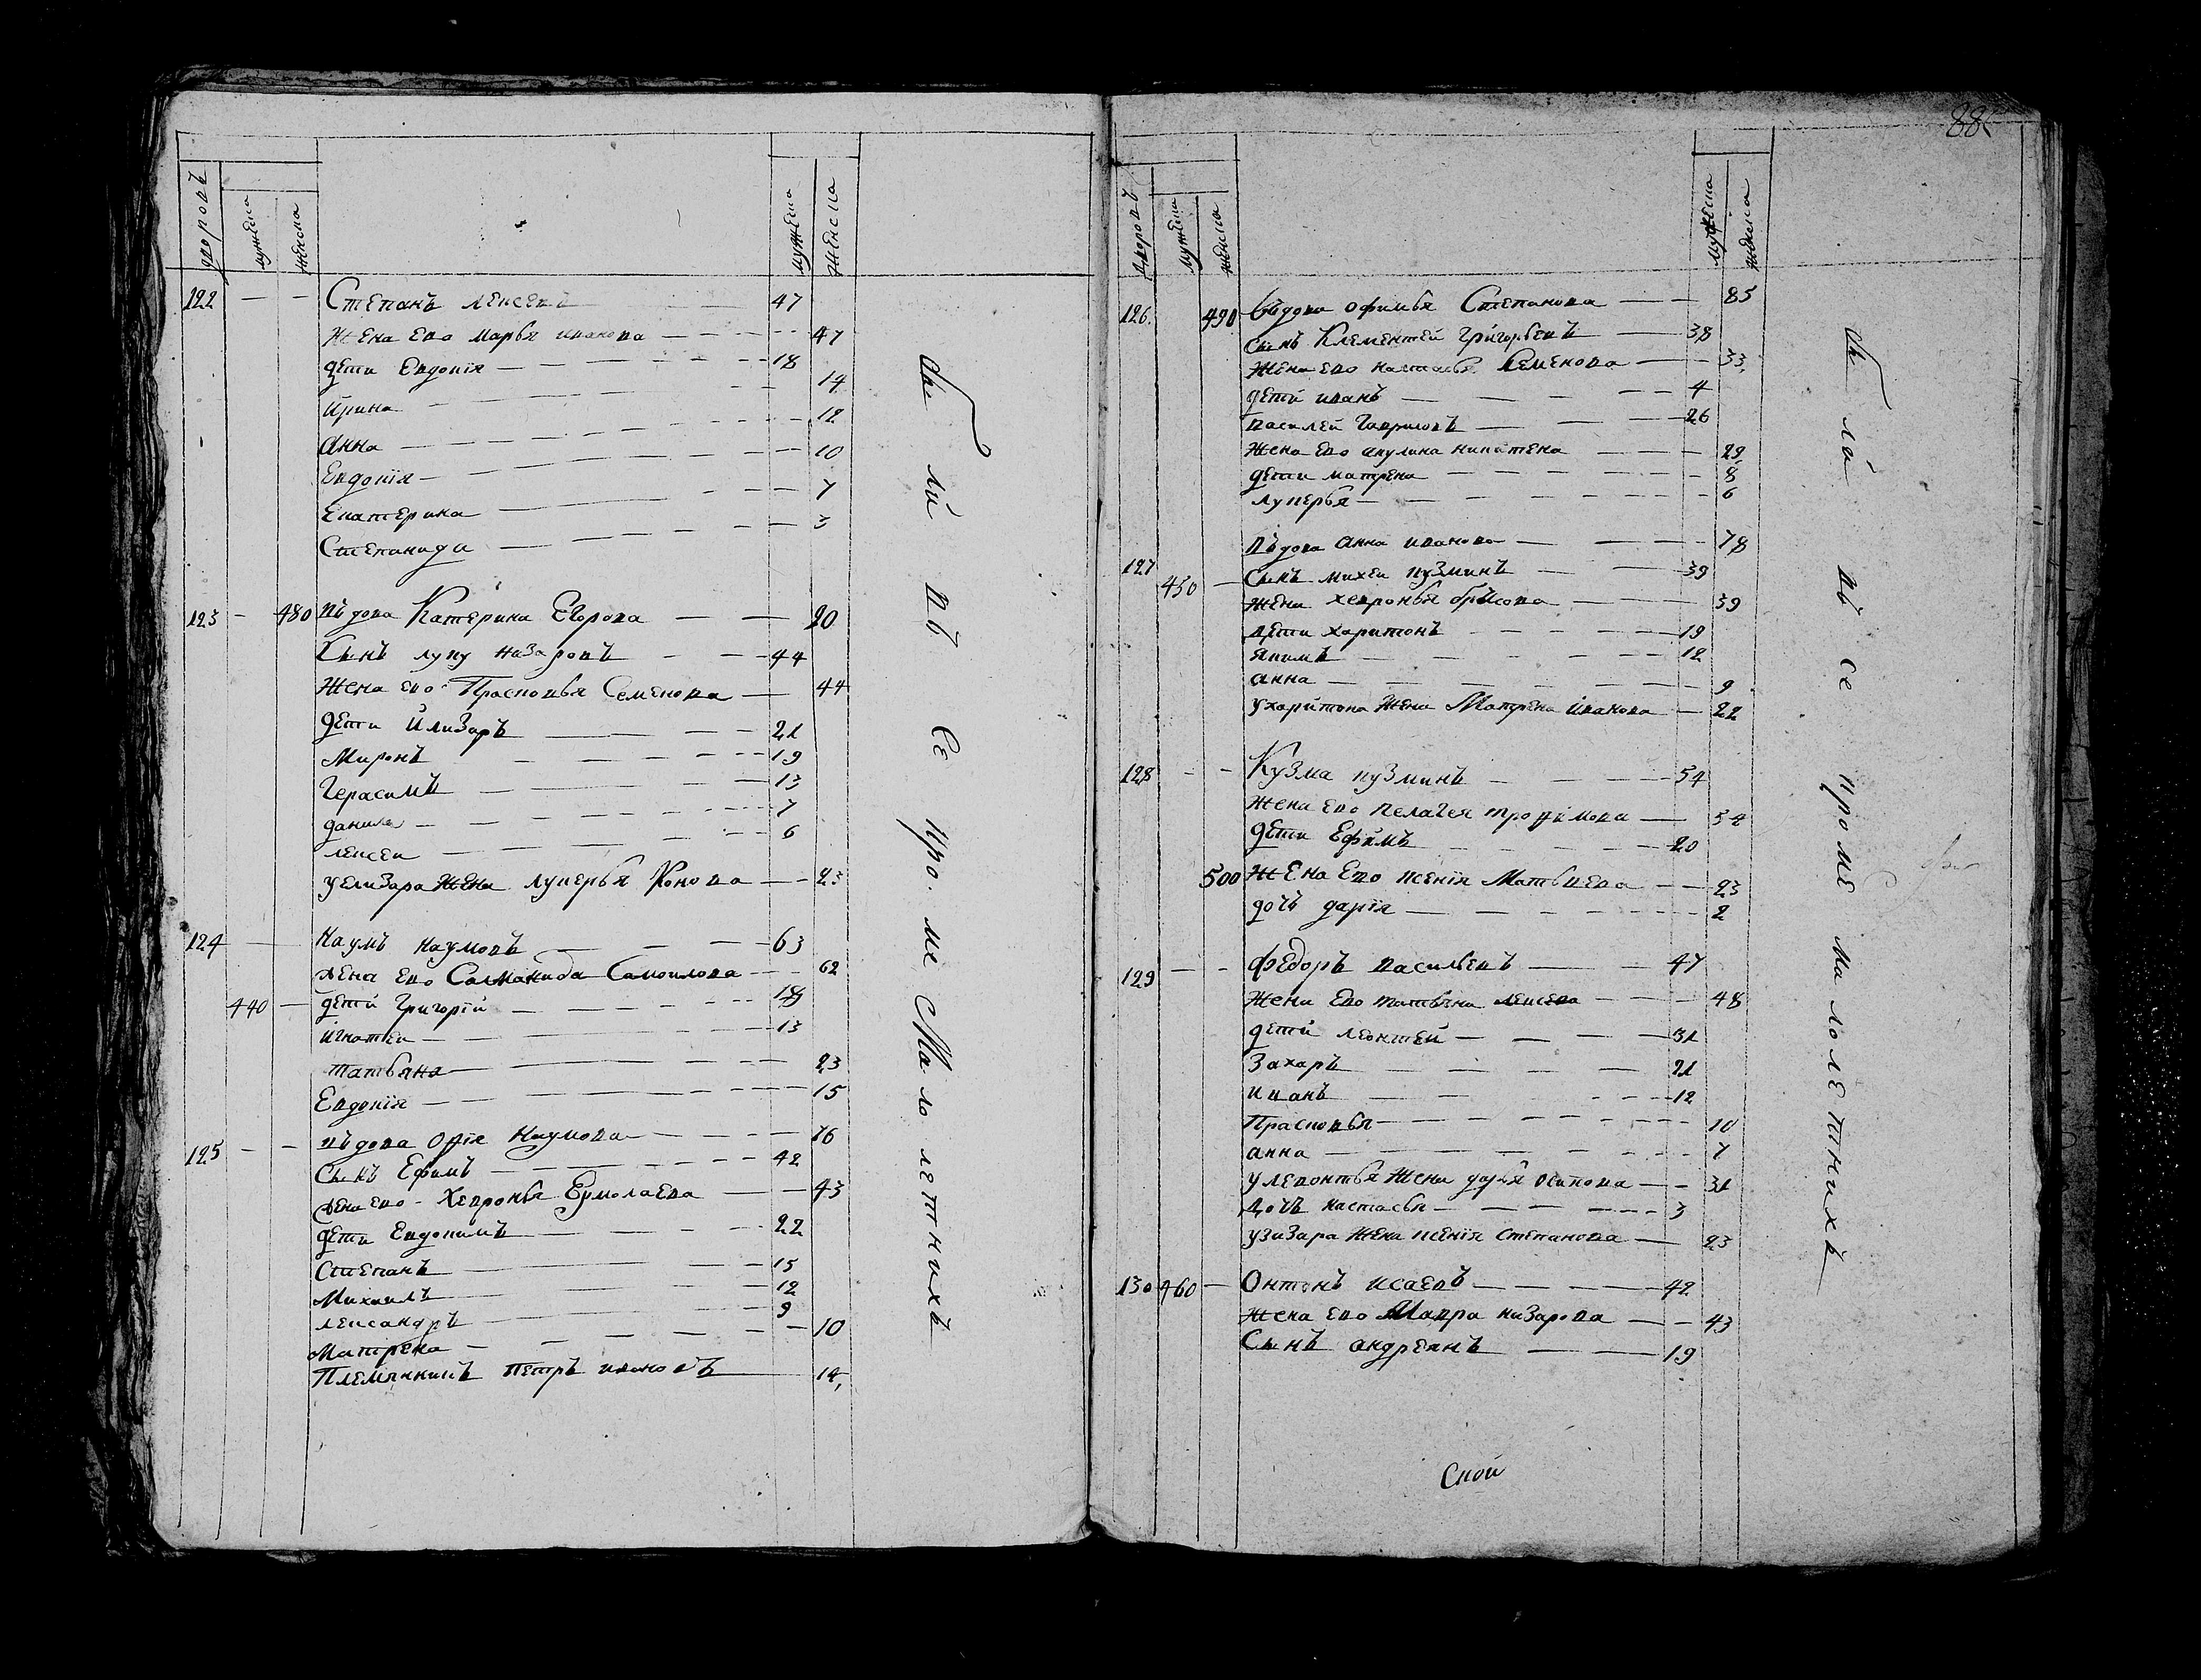 дворовъ мужеска женска мужеска женска
122 — — Степанъ лексеевъ 47
жена ево марья иванова — 47
дети Евдокія — 18
ирина — 14
анна — 12
Евдокія — 10
Екатерина — 7
Степанида — 3
123 — 480 въдова Катерина Егорова — 90
Сынъ лупу назаровъ — 44
жена ево Прасковья Семенова — 44
дети Илизаръ — 21
Миронъ — 19
Герасимъ — 13
данила — 7
лексеи — 6
у елизара жена лукерья Конова — 23
124 — Наумъ наумовъ — 63
жена ево Саламанида Самоилова — 62
440 — дети Григорій — 18
игнатеи — 13
татьяна — 23
Евдокія — 15
125 — — въдова Офія Наумова — 76
Сынъ Ефимъ — 42
жена ево Хевронья Ермолаева — 43
дети Евдокимъ — 22
Степанъ — 15
Михаилъ — 12
лександръ — 9
Матрена — 10
Племянникъ петръ ивановъ 14
Были въ се кро.ме Малолетнихъ
88
дворовъ мужеска женска мужеска женска
126. 490 въдова офимья Степанова — 85
сынъ Клементей Григорьевъ — 38
жена ево настасья Семенова — 33
дети иванъ — 4
василей Гавриловъ — 26
жена ево акулина никитена — 29
дети матрена — 8
лукерья — 6
127 въдова анна иванова — 78
450 — Сынъ михеи кузминъ — 39
жена хевронья брисова — 39
дети харитонъ — 19
якимъ — 12
анна — 9
у харитона жена Матрена иванова — 22
128 — — Кузма кузминъ — 54
жена ево пелагея трофимова — 54
дети Ефимъ — 20
500 жена Ево ксенія Матьвеева — 23
дочь дарія — 2
129 — — Федоръ васильевъ — 47
жена Ево татьяна лексеева — 48
дети леонтей — 31
Захаръ — 21
иванъ — 12
Прасковья — 10
анна — 7
у левонтья жена дарья осипова — 31
дочь настасья — 3
у зизара жена ксенія степанова — 23
130 460 — Онтонъ исаевъ — 42
жена ево Мавра назарова — 43
Сынъ андреянъ — 19
Были въ се кроме малолетнихъ
Скои